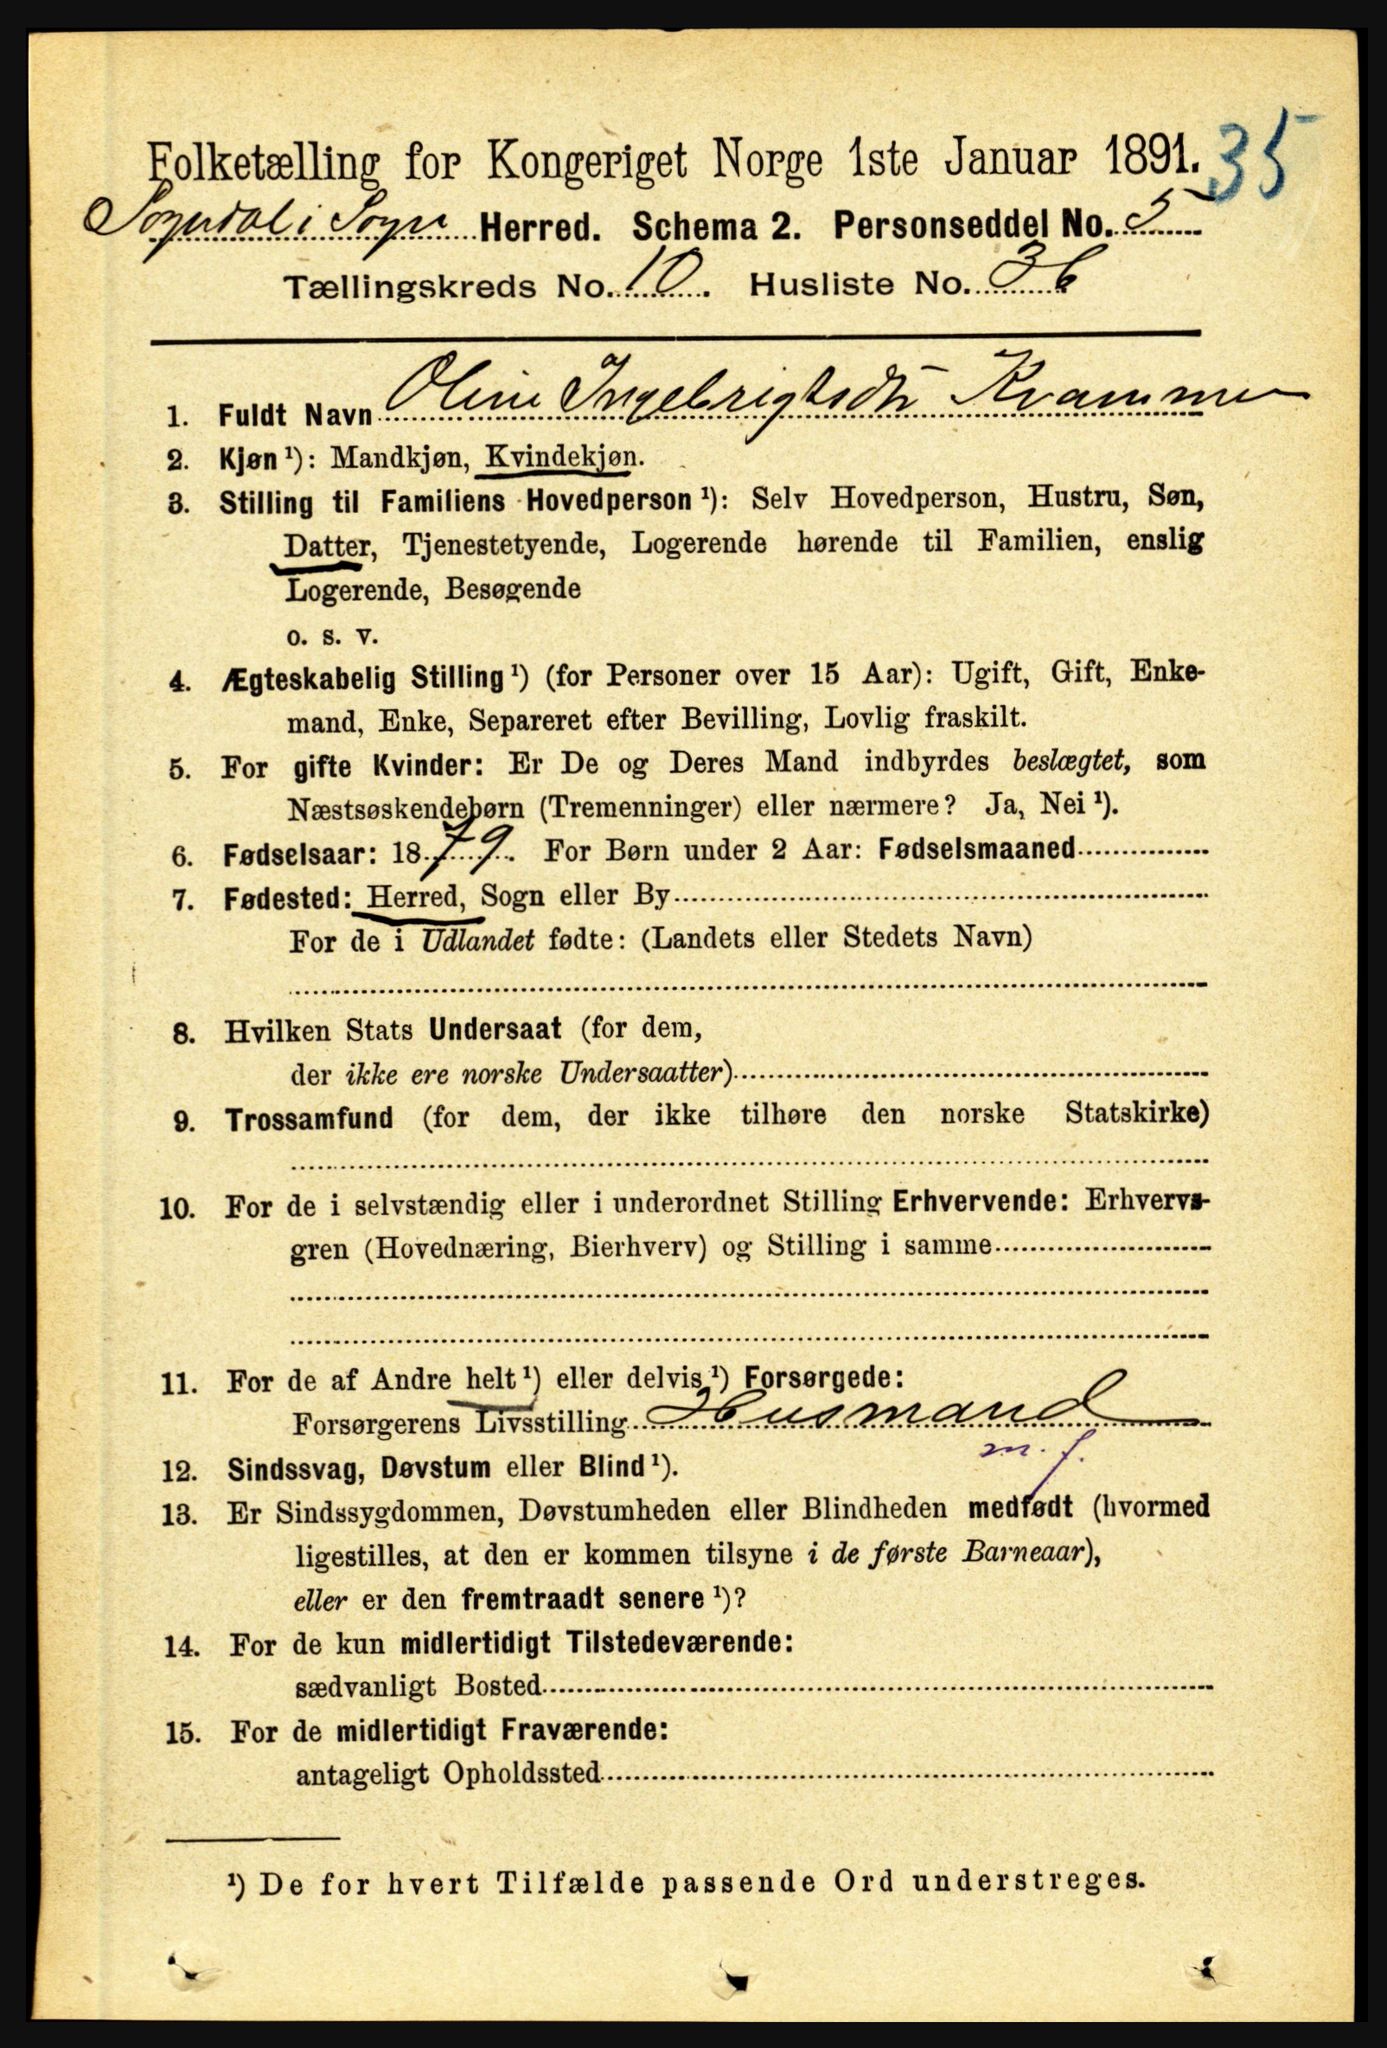 Folketælling for Kongeriget Norge 1ste Januar 1891. 35
Sogndal i Sogn Herred. Schema 2. Personseddel No. 5
Tællingskreds No. 10. Husliste No. 36
1. Fuldt Navn Oline Ingebrigtsdtr Kvamme
2. Kjøn¹): Mandkjøn, Kvindekjøn.
3. Stilling til Familiens Hovedperson¹): Selv Hovedperson, Hustru, Søn,
Datter, Tjenestetyende, Logerende hørende til Familien, enslig
Logerende, Besøgende
o. s. v.
4. Ægteskabelig Stilling¹) (for Personer over 15 Aar): Ugift, Gift, Enke-
mand, Enke, Separeret efter Bevilling, Lovlig fraskilt.
5. For gifte Kvinder: Er De og Deres Mand indbyrdes beslægtet, som
Næstsøskendebørn (Tremenninger) eller nærmere? Ja, Nei¹).
6. Fødselsaar: 1879. For Børn under 2 Aar: Fødselsmaaned
7. Fødested: Herred, Sogn eller By
For de i Udlandet fødte: (Landets eller Stedets Navn)
8. Hvilken Stats Undersaat (for dem,
der ikke ere norske Undersaatter)
9. Trossamfund (for dem, der ikke tilhøre den norske Statskirke)
10. For de i selvstændig eller i underordnet Stilling Erhvervende: Erhvervs-
gren (Hovednæring, Bierhverv) og Stilling i samme
11. For de af Andre helt¹) eller delvis¹) Forsørgede:
Forsørgerens Livsstilling Husmand
m. f.
12. Sindssvag, Døvstum eller Blind¹).
13. Er Sindssygdommen, Døvstumheden eller Blindheden medfødt (hvormed
ligestilles, at den er kommen tilsyne i de første Barneaar),
eller er den fremtraadt senere¹)?
14. For de kun midlertidigt Tilstedeværende:
sædvanligt Bosted
15. For de midlertidigt Fraværende:
antageligt Opholdssted
¹) De for hvert Tilfælde passende Ord understreges.